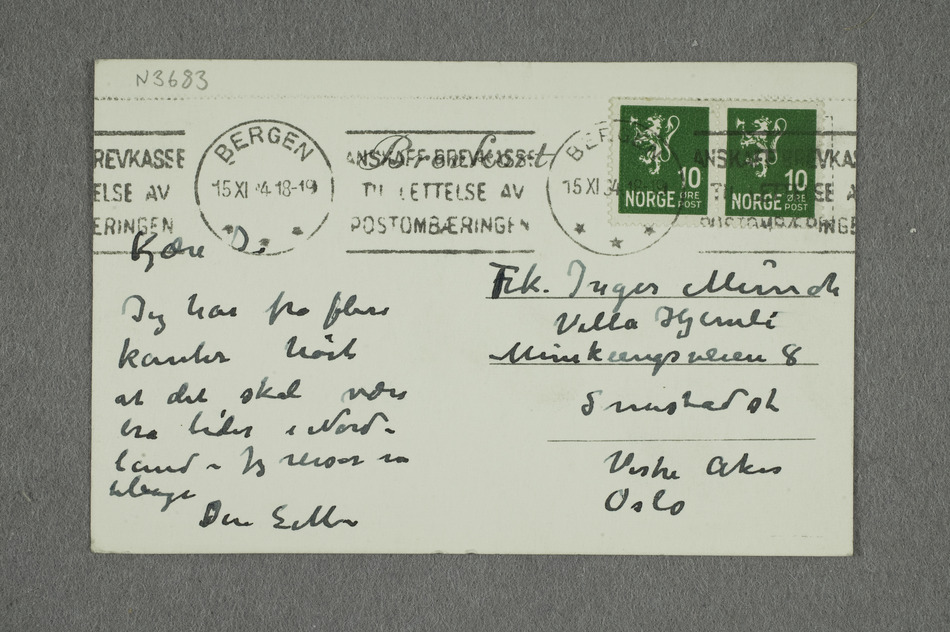 N3683
REVKASSE
ELSE AV
ERINGEN
BERGEN
15 XI 34 18-19
Brevkort
ANSKAFF BREVKASSE
TIL LETTELSE AV
POSTOMBÆRINGEN
BERGEN
15 XI 34 18-19
ANSKAFF BREVKAS
TIL LETTELSE A
POSTOMBÆRINGE
10
NORGE ØRE
POST
10
NORGE ØRE
POST
Kjære
Jeg har fra flere
kanter hört
at det skal være
bra tider i Nord-
land – Jeg reiser
tilbage
Din E. M.
Frk. Inger Munch
Villa
Munkeengsveien 8
Smestad st
Vestre Aker
Oslo